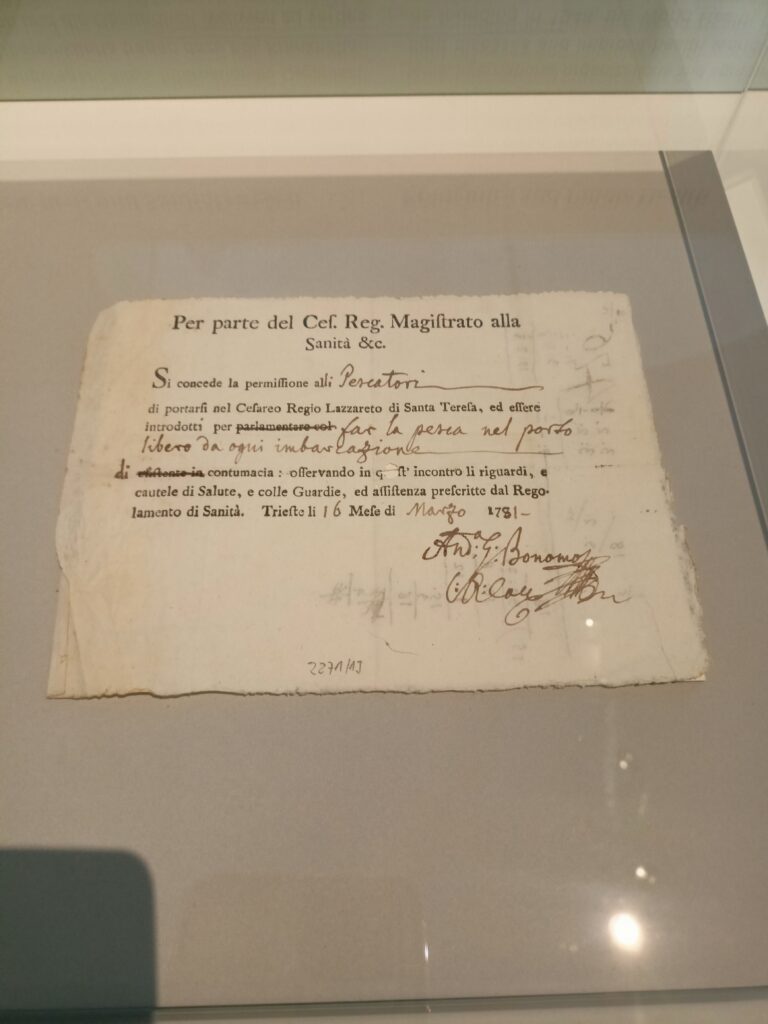 Per parte del Ceſ. Reg. Magiſtrato alla
Sanità &c.
Si concede la permiſſione alli Pescatori
di portarſi nel Ceſareo Regio Lazzareto di Santa Tereſa, ed eſſere
introdotti per parlamentare col far la pesca nel porto
libero da ogni imbarcazione
di eſiſtente in contumacia : oſſervando in q ſt' incontro li riguardi, e
cautele di Salute, e colle Guardie, ed aſſiſtenza preſcritte dal Rego-
lamento di Sanità. Trieſte li 16 Meſe di Marzo 1781-
And:a G: Bonomo
2271/13